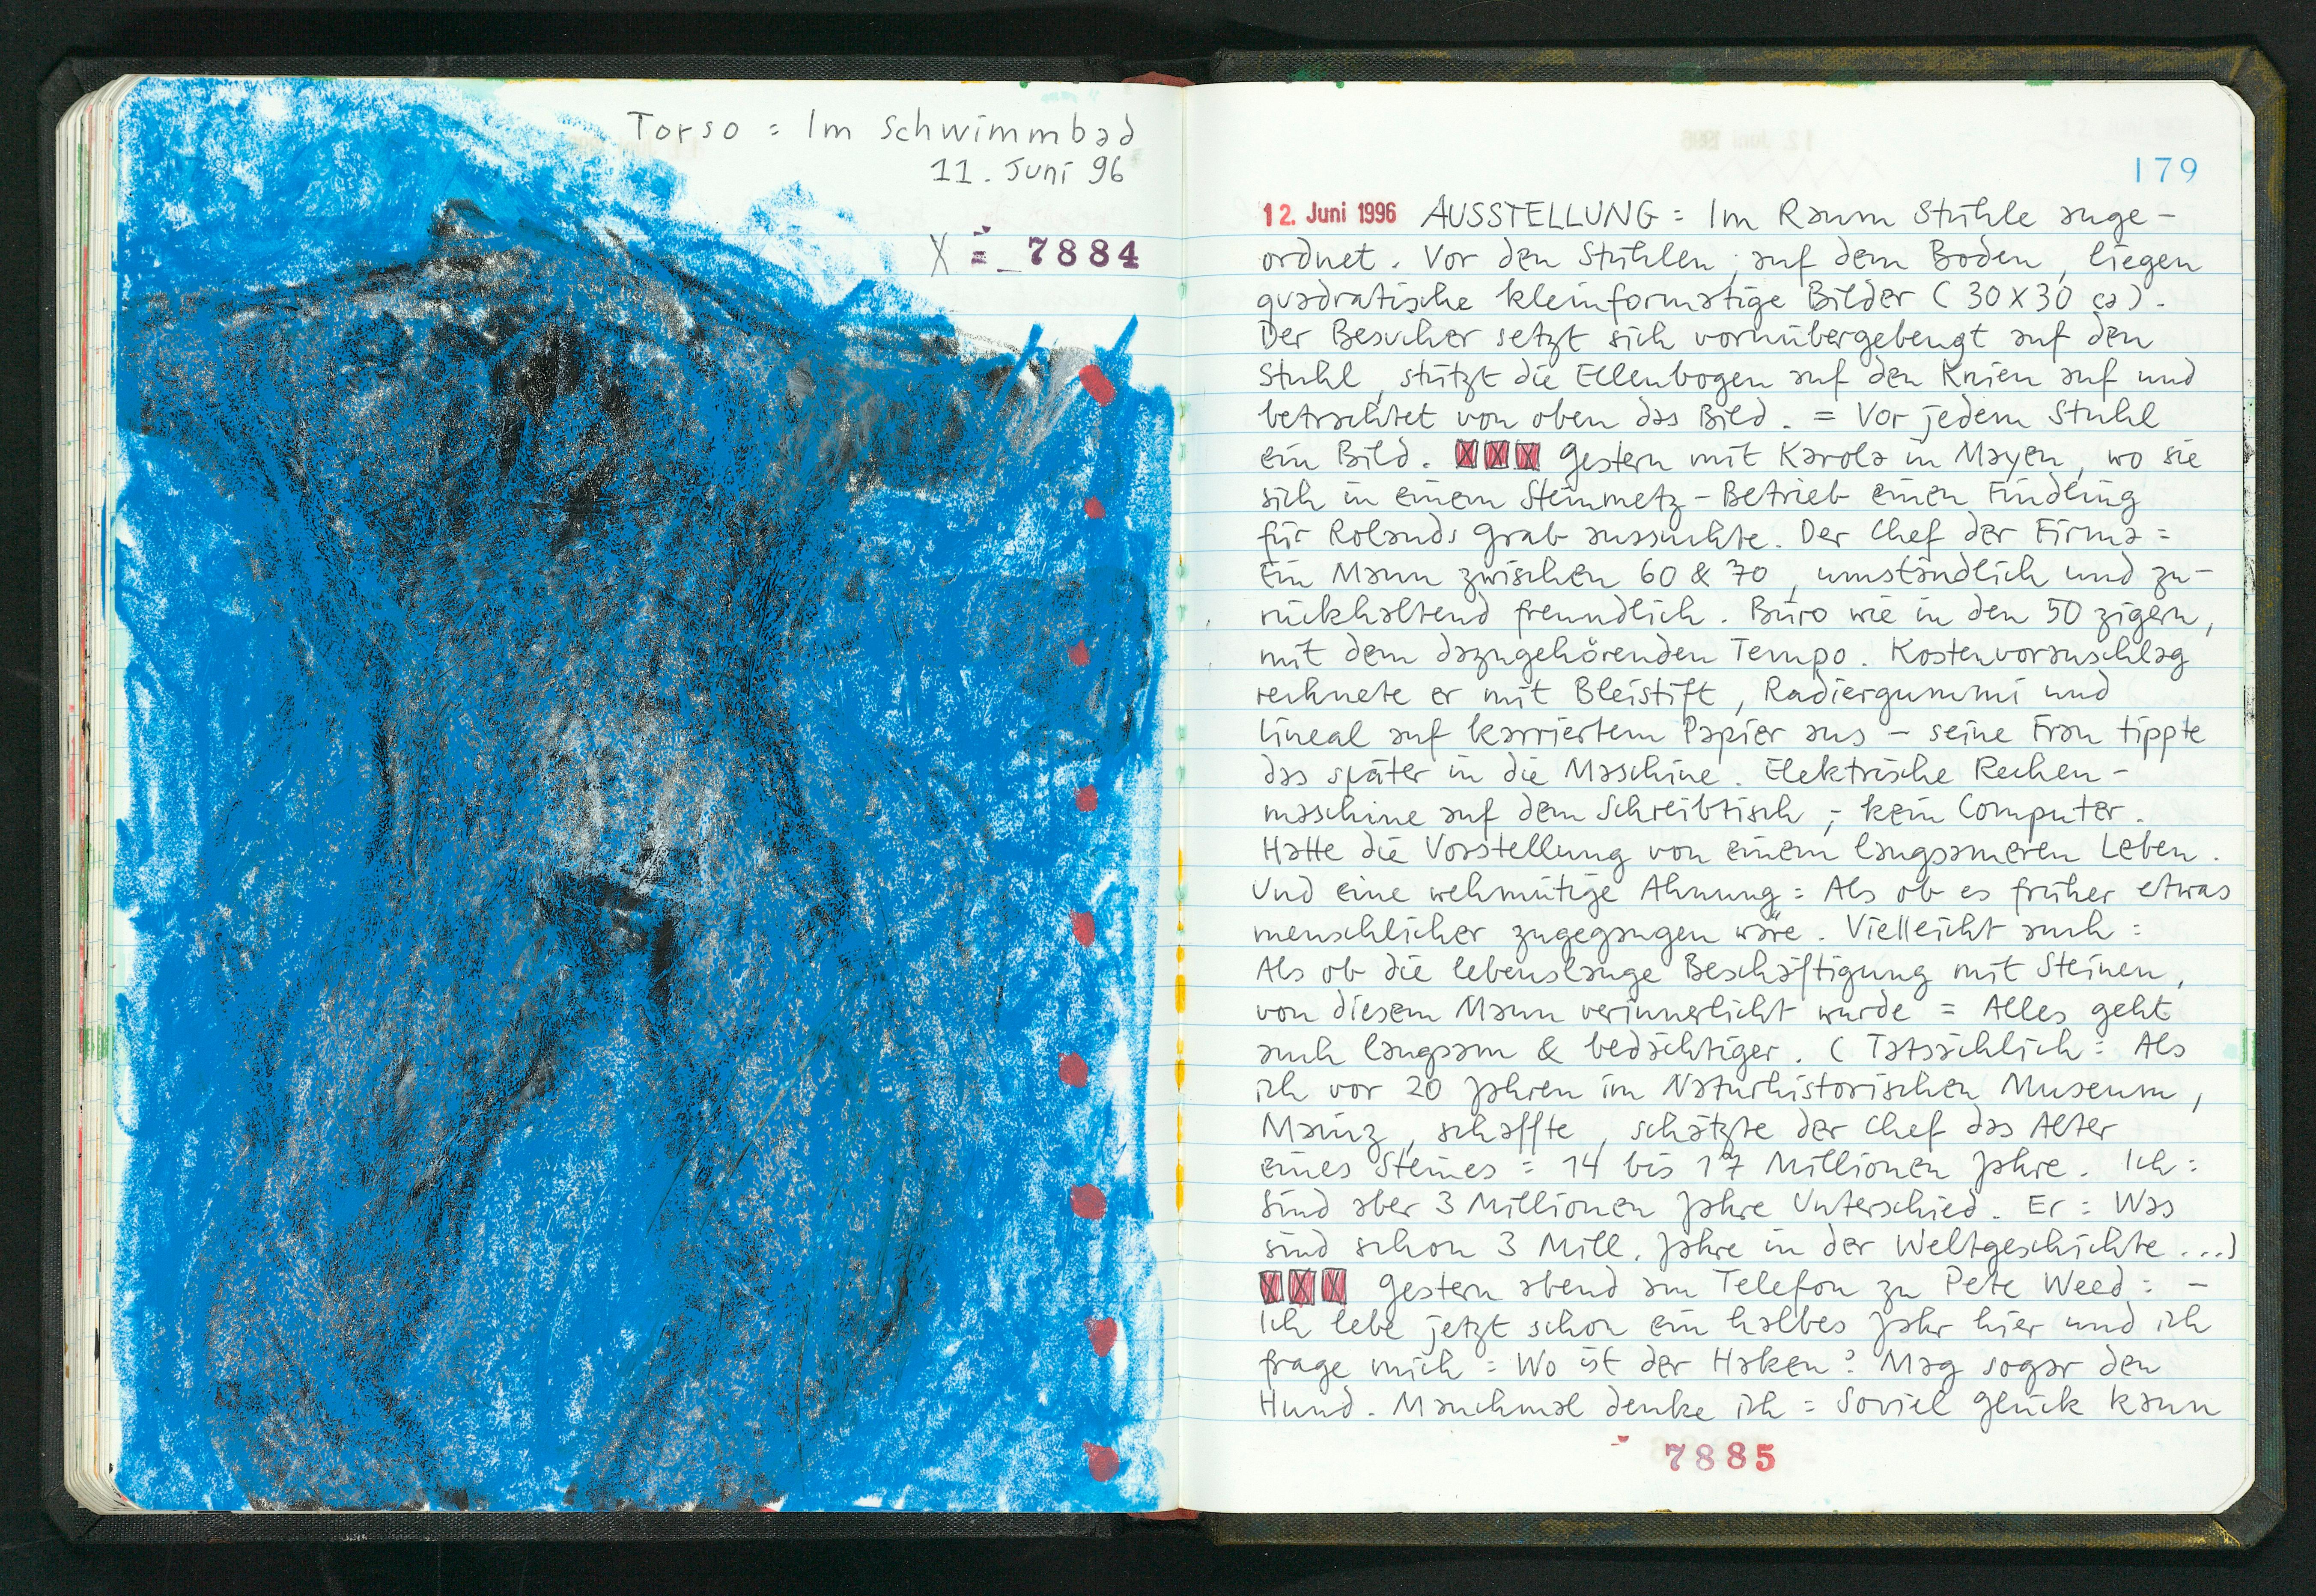 Torso = Im Schwimmbad
11. Juni 96
X = _7884
179
12. Juni 1996 AUSSTELLUNG = Im Raum Stühle ange-
ordnet. Vor den Stühlen, auf dem Boden, liegen
quadratische kleinformatige Bilder (30x30 ca).
Der Besucher setzt sich vornübergebeugt auf den
Stuhl, stützt die Ellenbogen auf den Knien auf und
betrachtet von oben das Bild. = Vor jedem Stuhl
ein Bild. XXX Gestern mit Karola in Mayen, wo sie
sich in einem Steinmetz-Betrieb einen Findling
für Rolands Grab aussuchte. Der Chef der Firma =
Ein Mann zwischen 60 & 70, umständlich und zu-
rückhaltend freundlich. Büro wie in den 50zigern,
mit dem dazugehörenden Tempo. Kostenvoranschlag
rechnete er mit Bleistift, Radiergummi und
Lineal auf karriertem Papier aus - seine Frau tippte
das später in die Maschine. Elektrische Rechen-
maschine auf dem Schreibtisch, - kein Computer.
Hatte die Vorstellung von einem langsameren Leben.
Und eine wehmütige Ahnung = Als ob es früher etwas
menschlicher zugegangen wäre. Vielleicht auch =
Als ob die lebenslange Beschäftigung mit Steinen,
von diesem Mann verinnerlicht wurde = Alles geht
auch langsam & bedächtiger. (Tatsächlich = Als
ich vor 20 Jahren im Naturhistorischen Museum,
Mainz, schaffte, schätzte der Chef das Alter
eines Steines = 14 bis 17 Millionen Jahre. Ich =
Sind aber 3 Millionen Jahre Unterschied. Er = Was
sind schon 3 Mill. Jahre in der Weltgeschichte...)
XXX Gestern abend am Telefon zu Pete Weed = -
Ich lebe jetzt schon ein halbes Jahr hier und ich
frage mich = Wo ist der Haken? Mag sogar den
Hund. Manchmal denke ich = Soviel Glück kann
7885